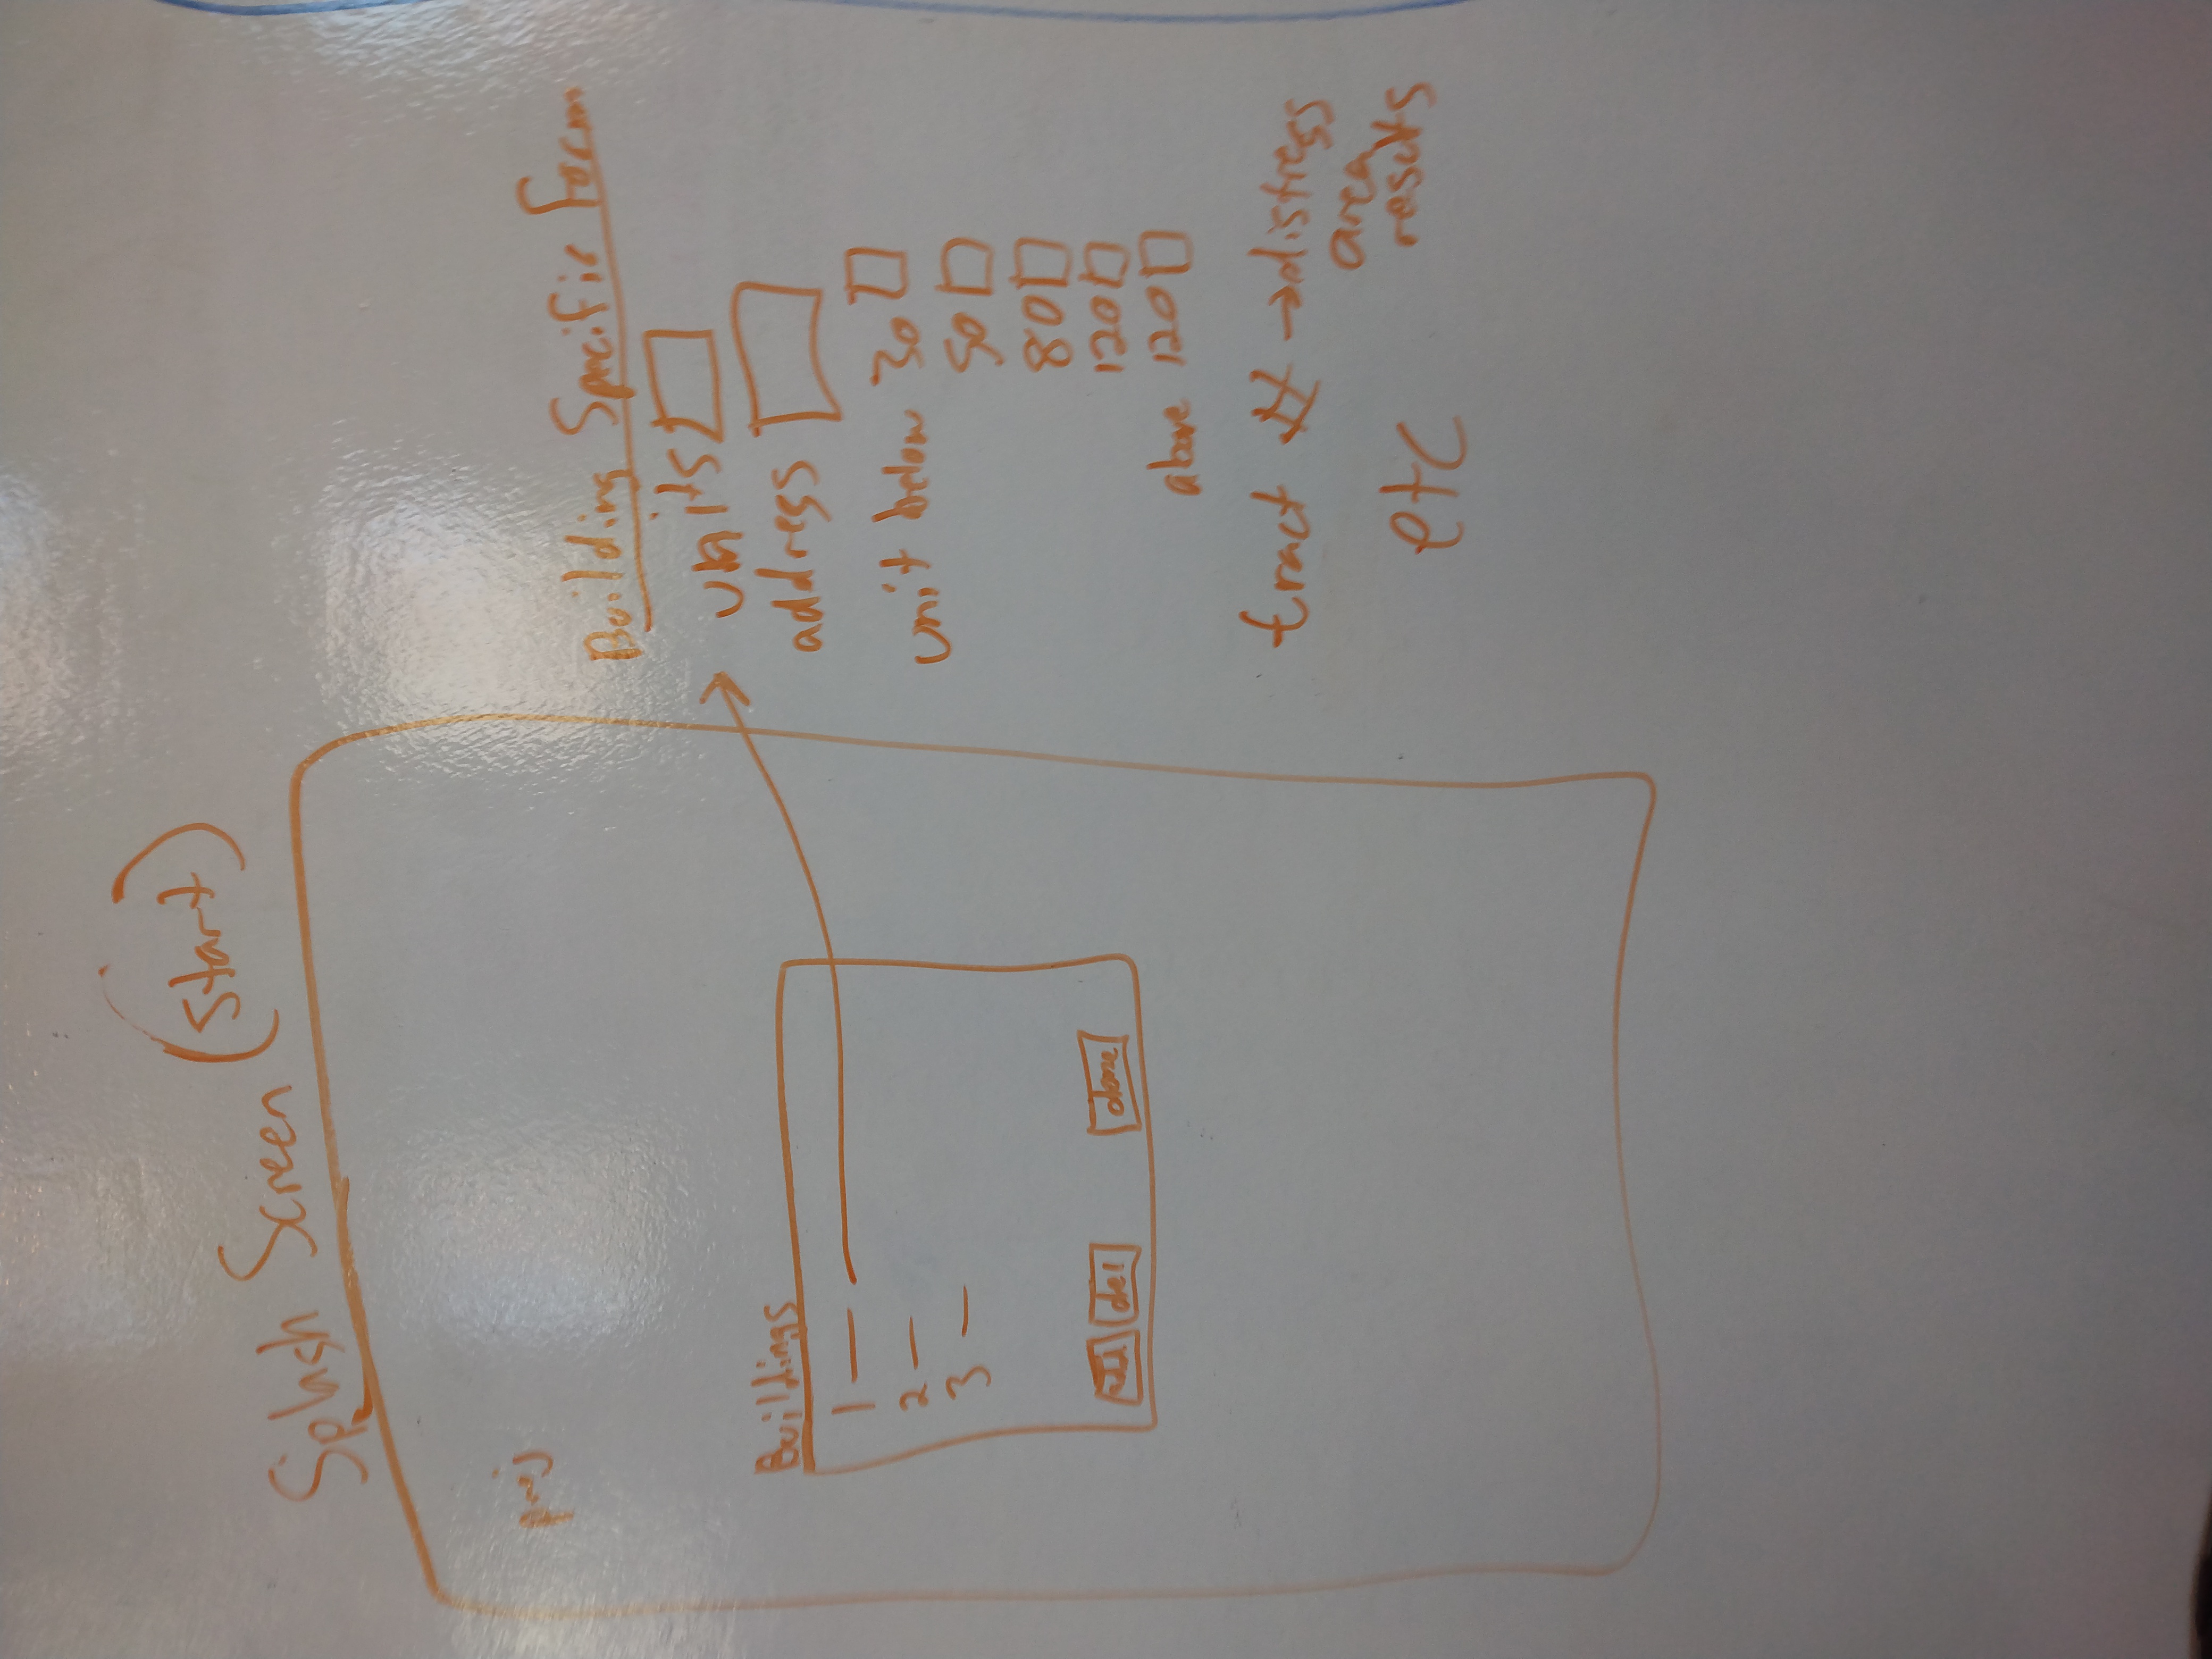 Splash Screen (start)
proj
Buildings
1 —
2 —
3 —
add del done
Building Specific Form
units
address
unit below 30
50
80
120
above 120
tract # → distress
area
results
etc